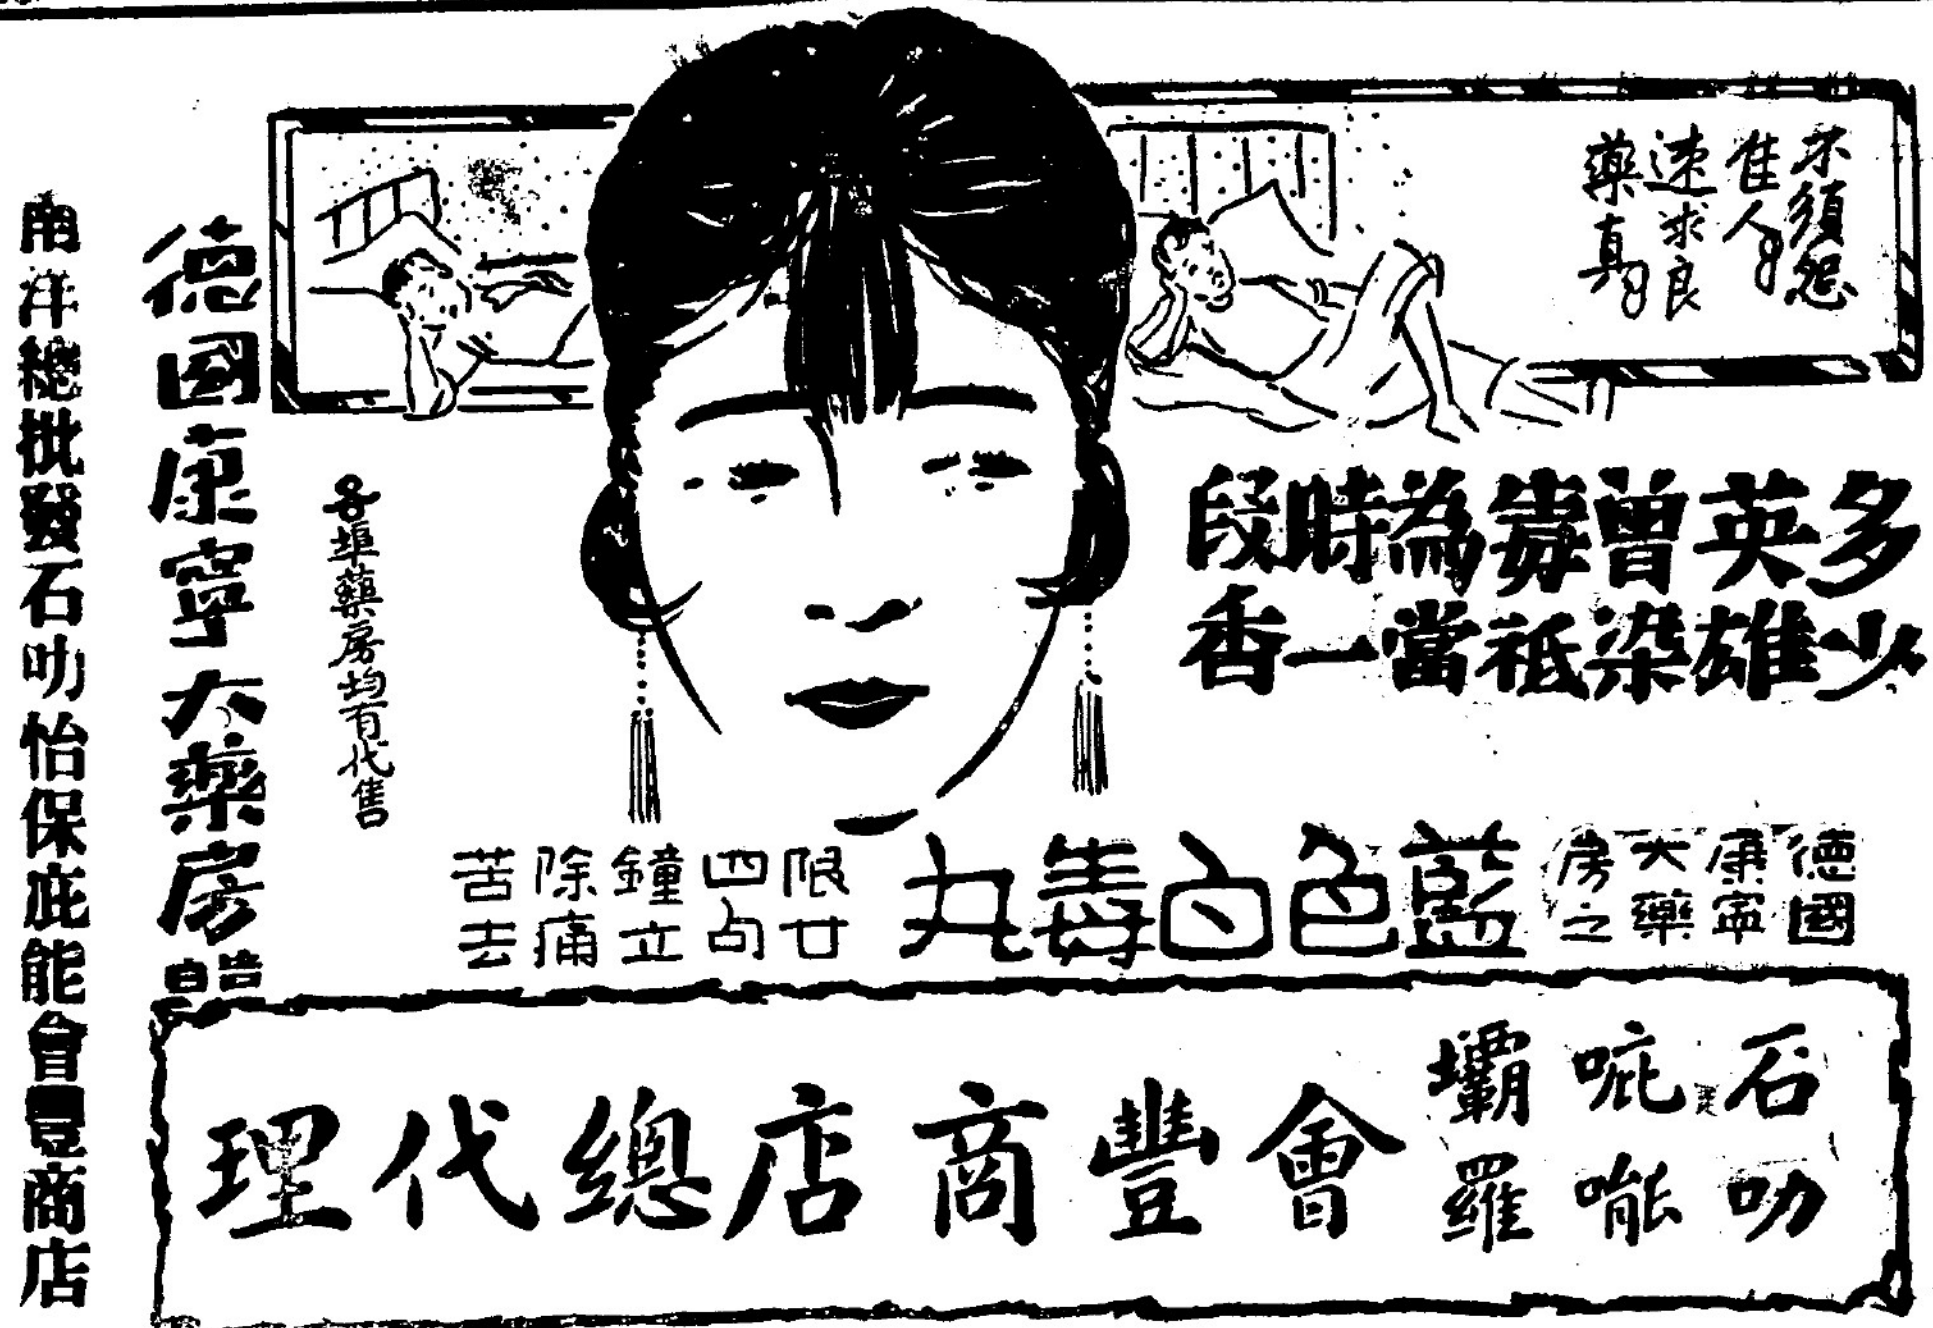 不須怨
佳人
速求良
藥真
多少
英雄
曾染
毒祇
為當
時一
段香
德國
康寧
大藥
房之
藍色白毒丸
限廿
四句
鐘立
除痛
苦去
各埠藥房均有代售
德國康寧大藥房
南洋總批發石叻怡保庇能會豐商店
石叻
壩羅
會豐商店總代理